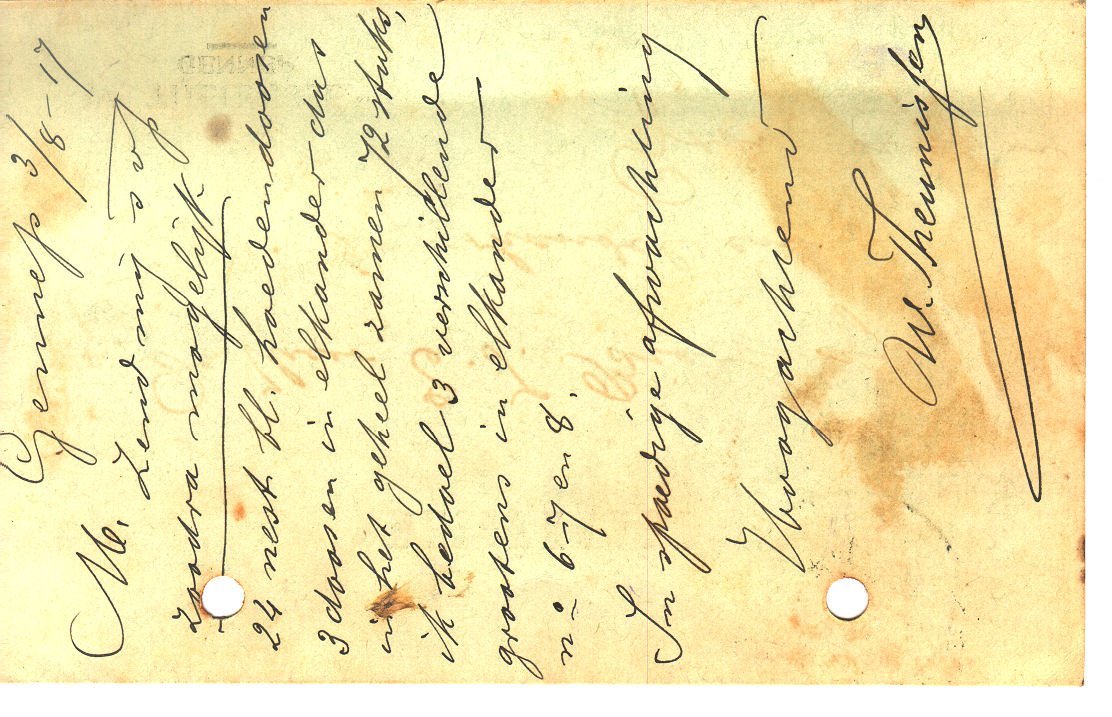 Gennep 3/8-17
M.
Zend mij svp
zoodra mogelijk
24 nest bl. hoedendoosen
3 doosen in elkander dus
in het geheel zamen 72 stuks,
ik bedoel 3 verschillende
grootens in elkander
no 6-7 en 8.
In spoedige afwachting
Hoogachtend
W. Theunissen
GENNEP